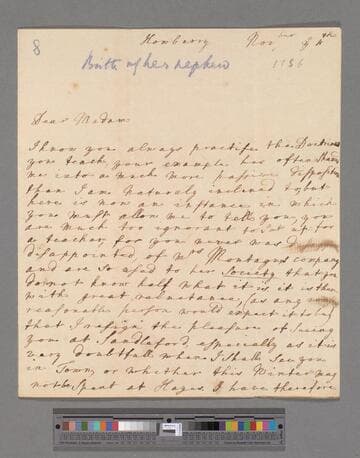 8
Howberry Nov,ber ye 4th
Birth of her nephew 1756
Dear Madam
I know you always practise the Doctrines
you teach, your example has often
me into a much more passive disposition
than I am naturely inclined to, but
here is now an instance in which
you must allow me to tell you, you
are much too ignorant to set up for
a teacher, for you never was
disappointed, of Mrs Montagus company
and are so used to her Society that you
do not know half what it is, it is then
with great reluctance, (as any
reasonable person would expect it to be)
that I resign the pleasure of seeing
you at Sandleford especially as it is
very doubtfull when I shall see you
in Town, or whether this Winter may
not be spent at Hages. I have therefore